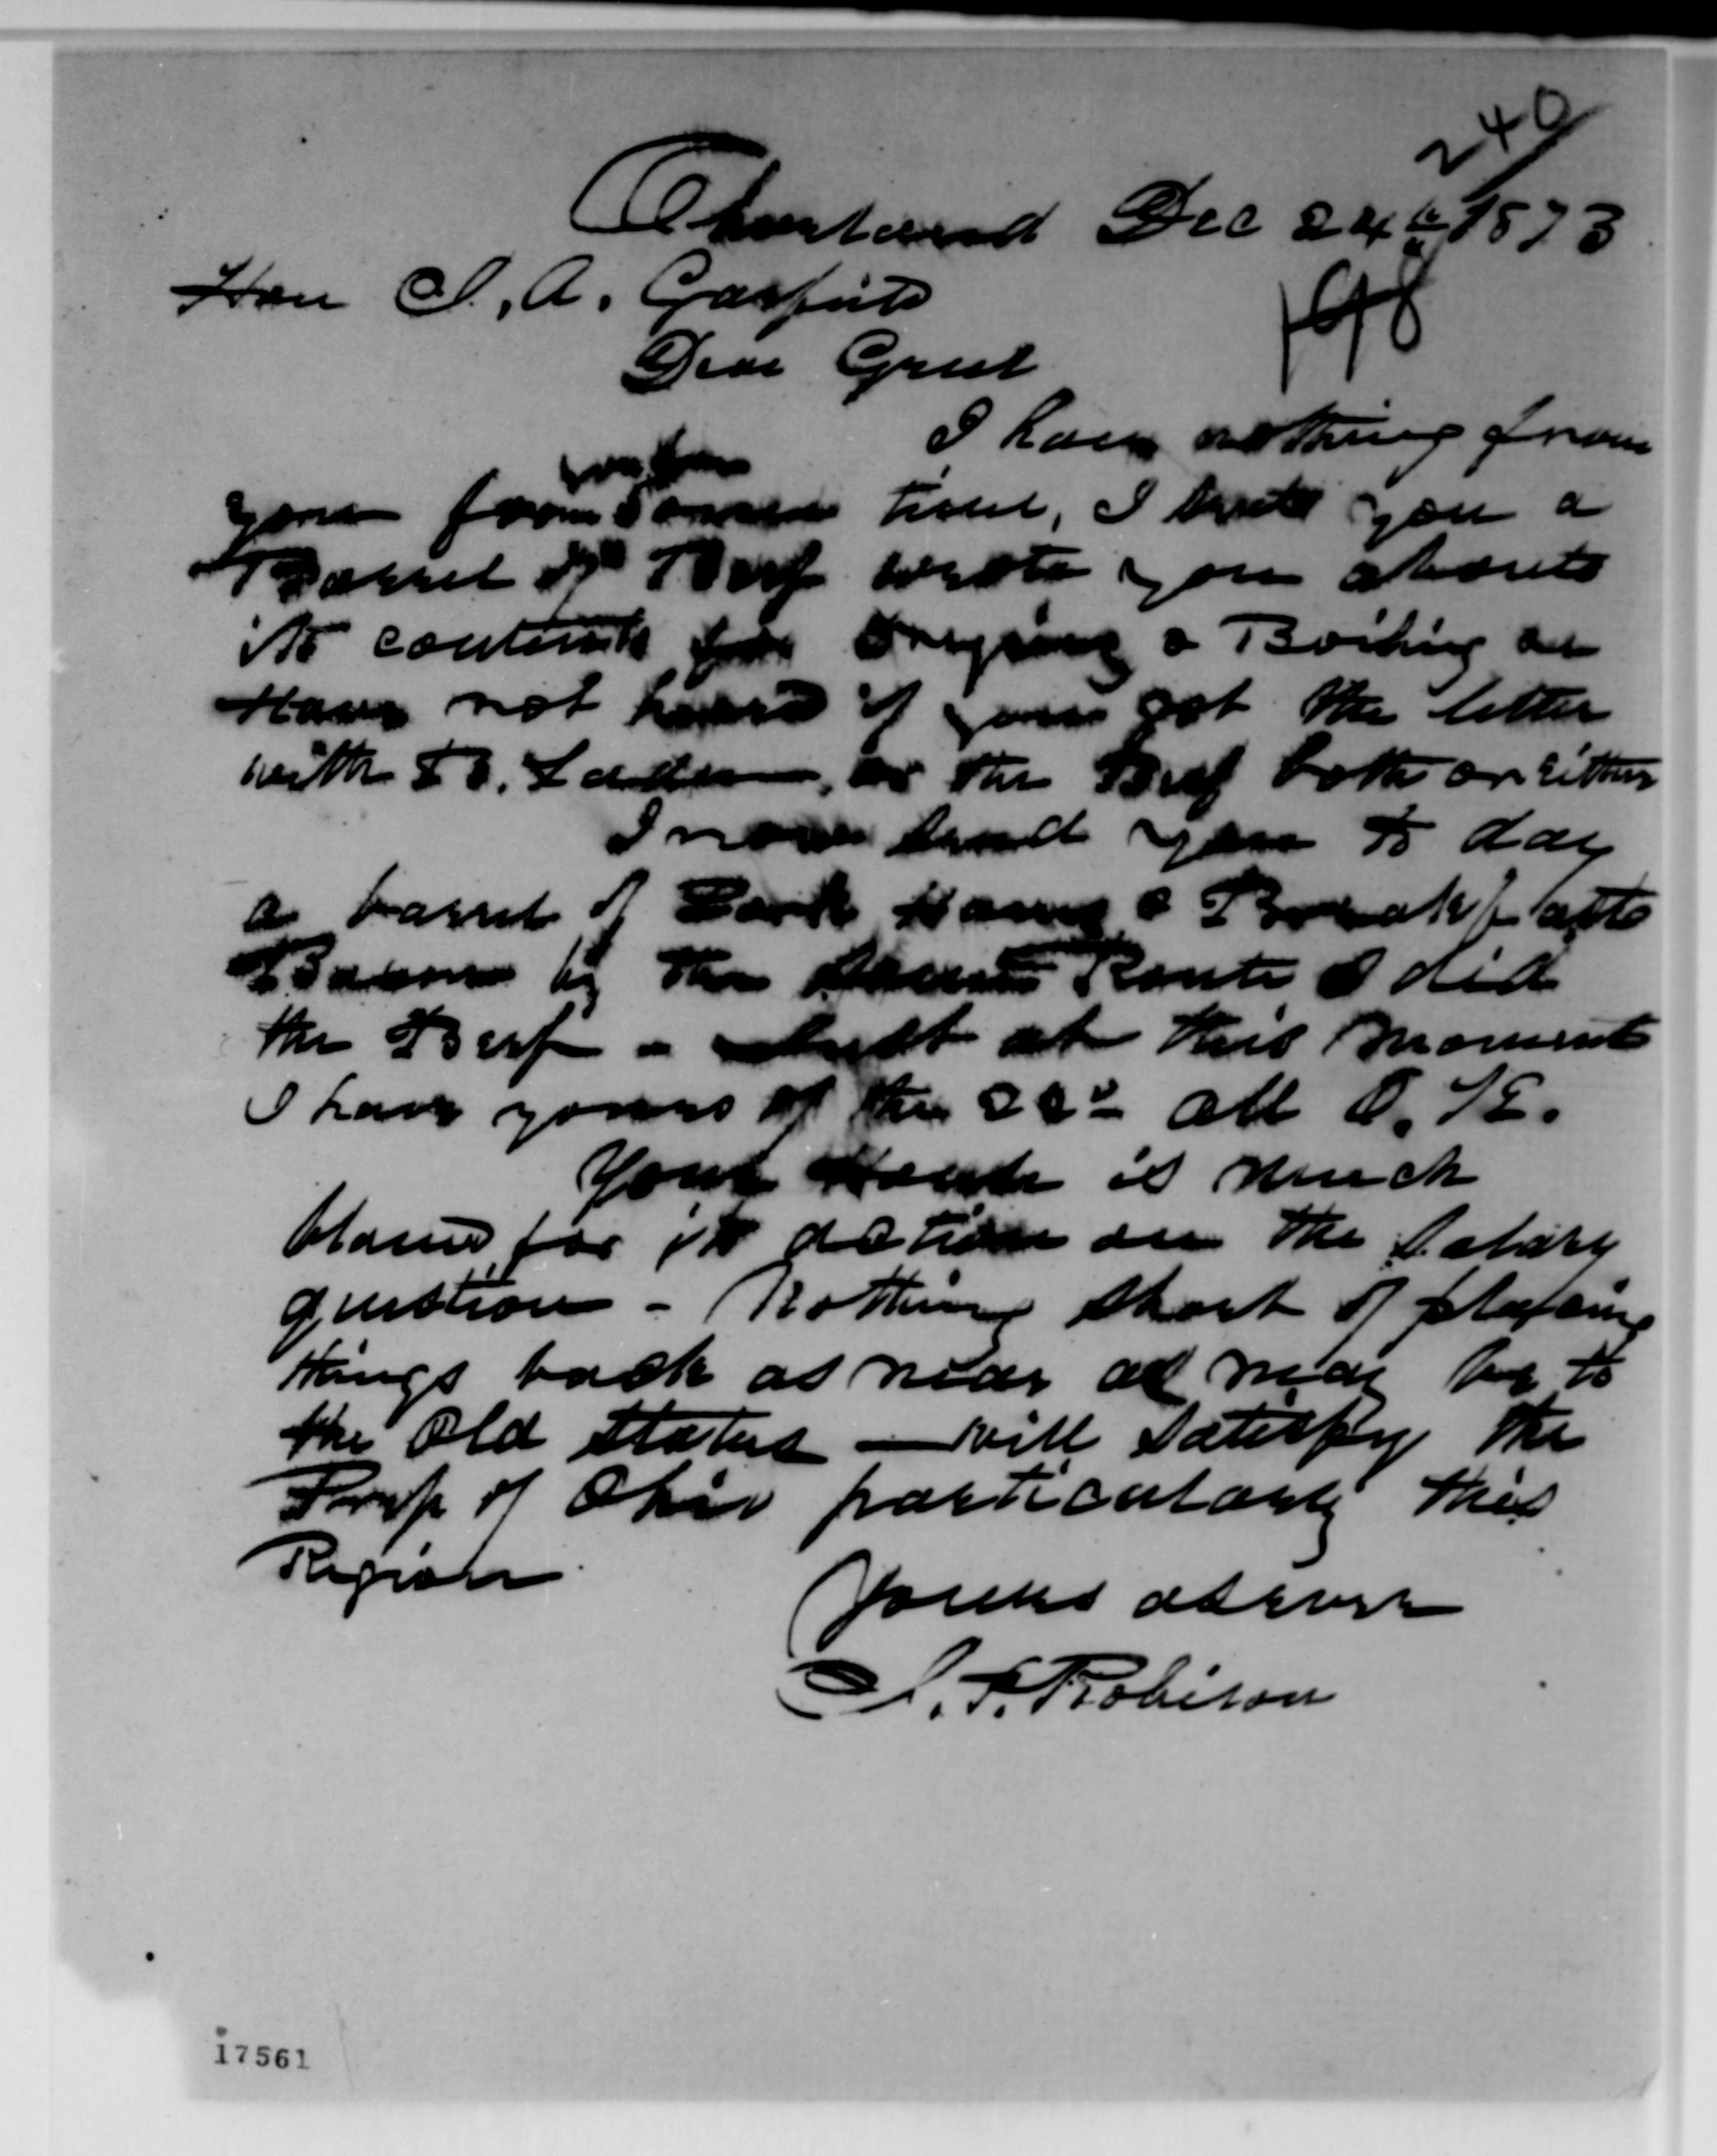 240
Cleveland Dec 24th 1873
198
Hon J. A. Garfield
Dear Genl
I have nothing from
you for some time, I sent you a
Barrel of Beef wrote you about
its contents for Frying & Boiling &c
Have not heard if you got the letter
with B. Laden, or the Beef both or either
I now send you to day
a barrel of Pork Hams & Breakfast
Bacon by the same Route I did
the Beef - Just at this moment
I have yours of the 22d all O.K.
Your House is much
blamed for its action on the Salary
question - Nothing short of placing
things back as near as may be to
the Old Status - will satisfy the
Peop of Ohio particularly this
Region
Yours as ever
J. F. Robison
17561